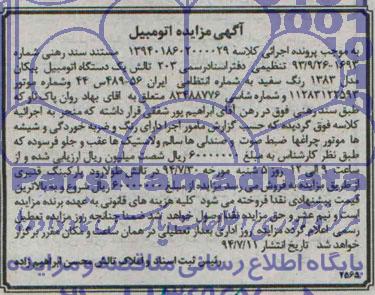 آگهی مزایده اتومبیل
به موجب پرونده اجرائی کلاسه ۱۳۹۴۰۱۸۶۰۲۰۰۰۰۲۹ مستند سند رهنی شماره
۱۶۹۳-۹۳/۹/۲۶ تنظیمی دفتر اسناد رسمی ۲۰۳ تالش یک دستگاه اتومبیل پیکان
مدل ۱۳۸۳ رنگ سفید به شماره انتظامی ایران ۵۶-۴۸۹س ۴۴ وشماره موتور
۱۱۲۸۳۱۲۲۵۹۳ و شماره شاسی ۸۳۴۸۸۷۷۶ متعلق به آقای بهاد روان پاک دل که
طبق سند رهنی فوق در رهن آقای ابراهیم پور شفقی قرار داشته که منجر به اجرائیه
کلاسه فوق گردیده که حسب گزارش مامور اجرا دارای رنگ و ضربه خوردگی و شیشه
ها موتور چراغها ضبط صوت و صندلی ها سالم ولاستیک ها عقب و جلو فرسوده که
طبق نظر کارشناس به مبلغ ۶۰۰۰۰۰۰۰ ریال شصت میلیون ریال ارزیابی شده و از
ساعت ۹ الی ۱۲ روز ۵ شنبه مورخ ۹۴/۷/۳۰ در تالش طولارود پارکینگ قصری
از طریق مزایده به فروش می رسد مزایده از مبلغ ۶۰۰۰۰۰۰۰ ریال شروع و به بالاترین
قیمت پیشنهادی نقدا فروخته می شود کلیه هزینه های قانونی به عهده برنده مزایده
است و نیم عشر و حق مزایده نقدا وصول خواهد شد ضمنا چنانچه روز مزایده تعطیل
رسمی اعلام گردد مزایده روز اداری بعد از تعطیلی در همان ساعت و مکان مقرر برگزار
خواهد شد تاریخ انتشار ۹۴/۷/۱۱
رئیس ثبت اسناد و املاک تالش محسن ابراهیم زاده
۲۵۶۵
پایگاه اطلاع رسانی مناقصه و مزایده